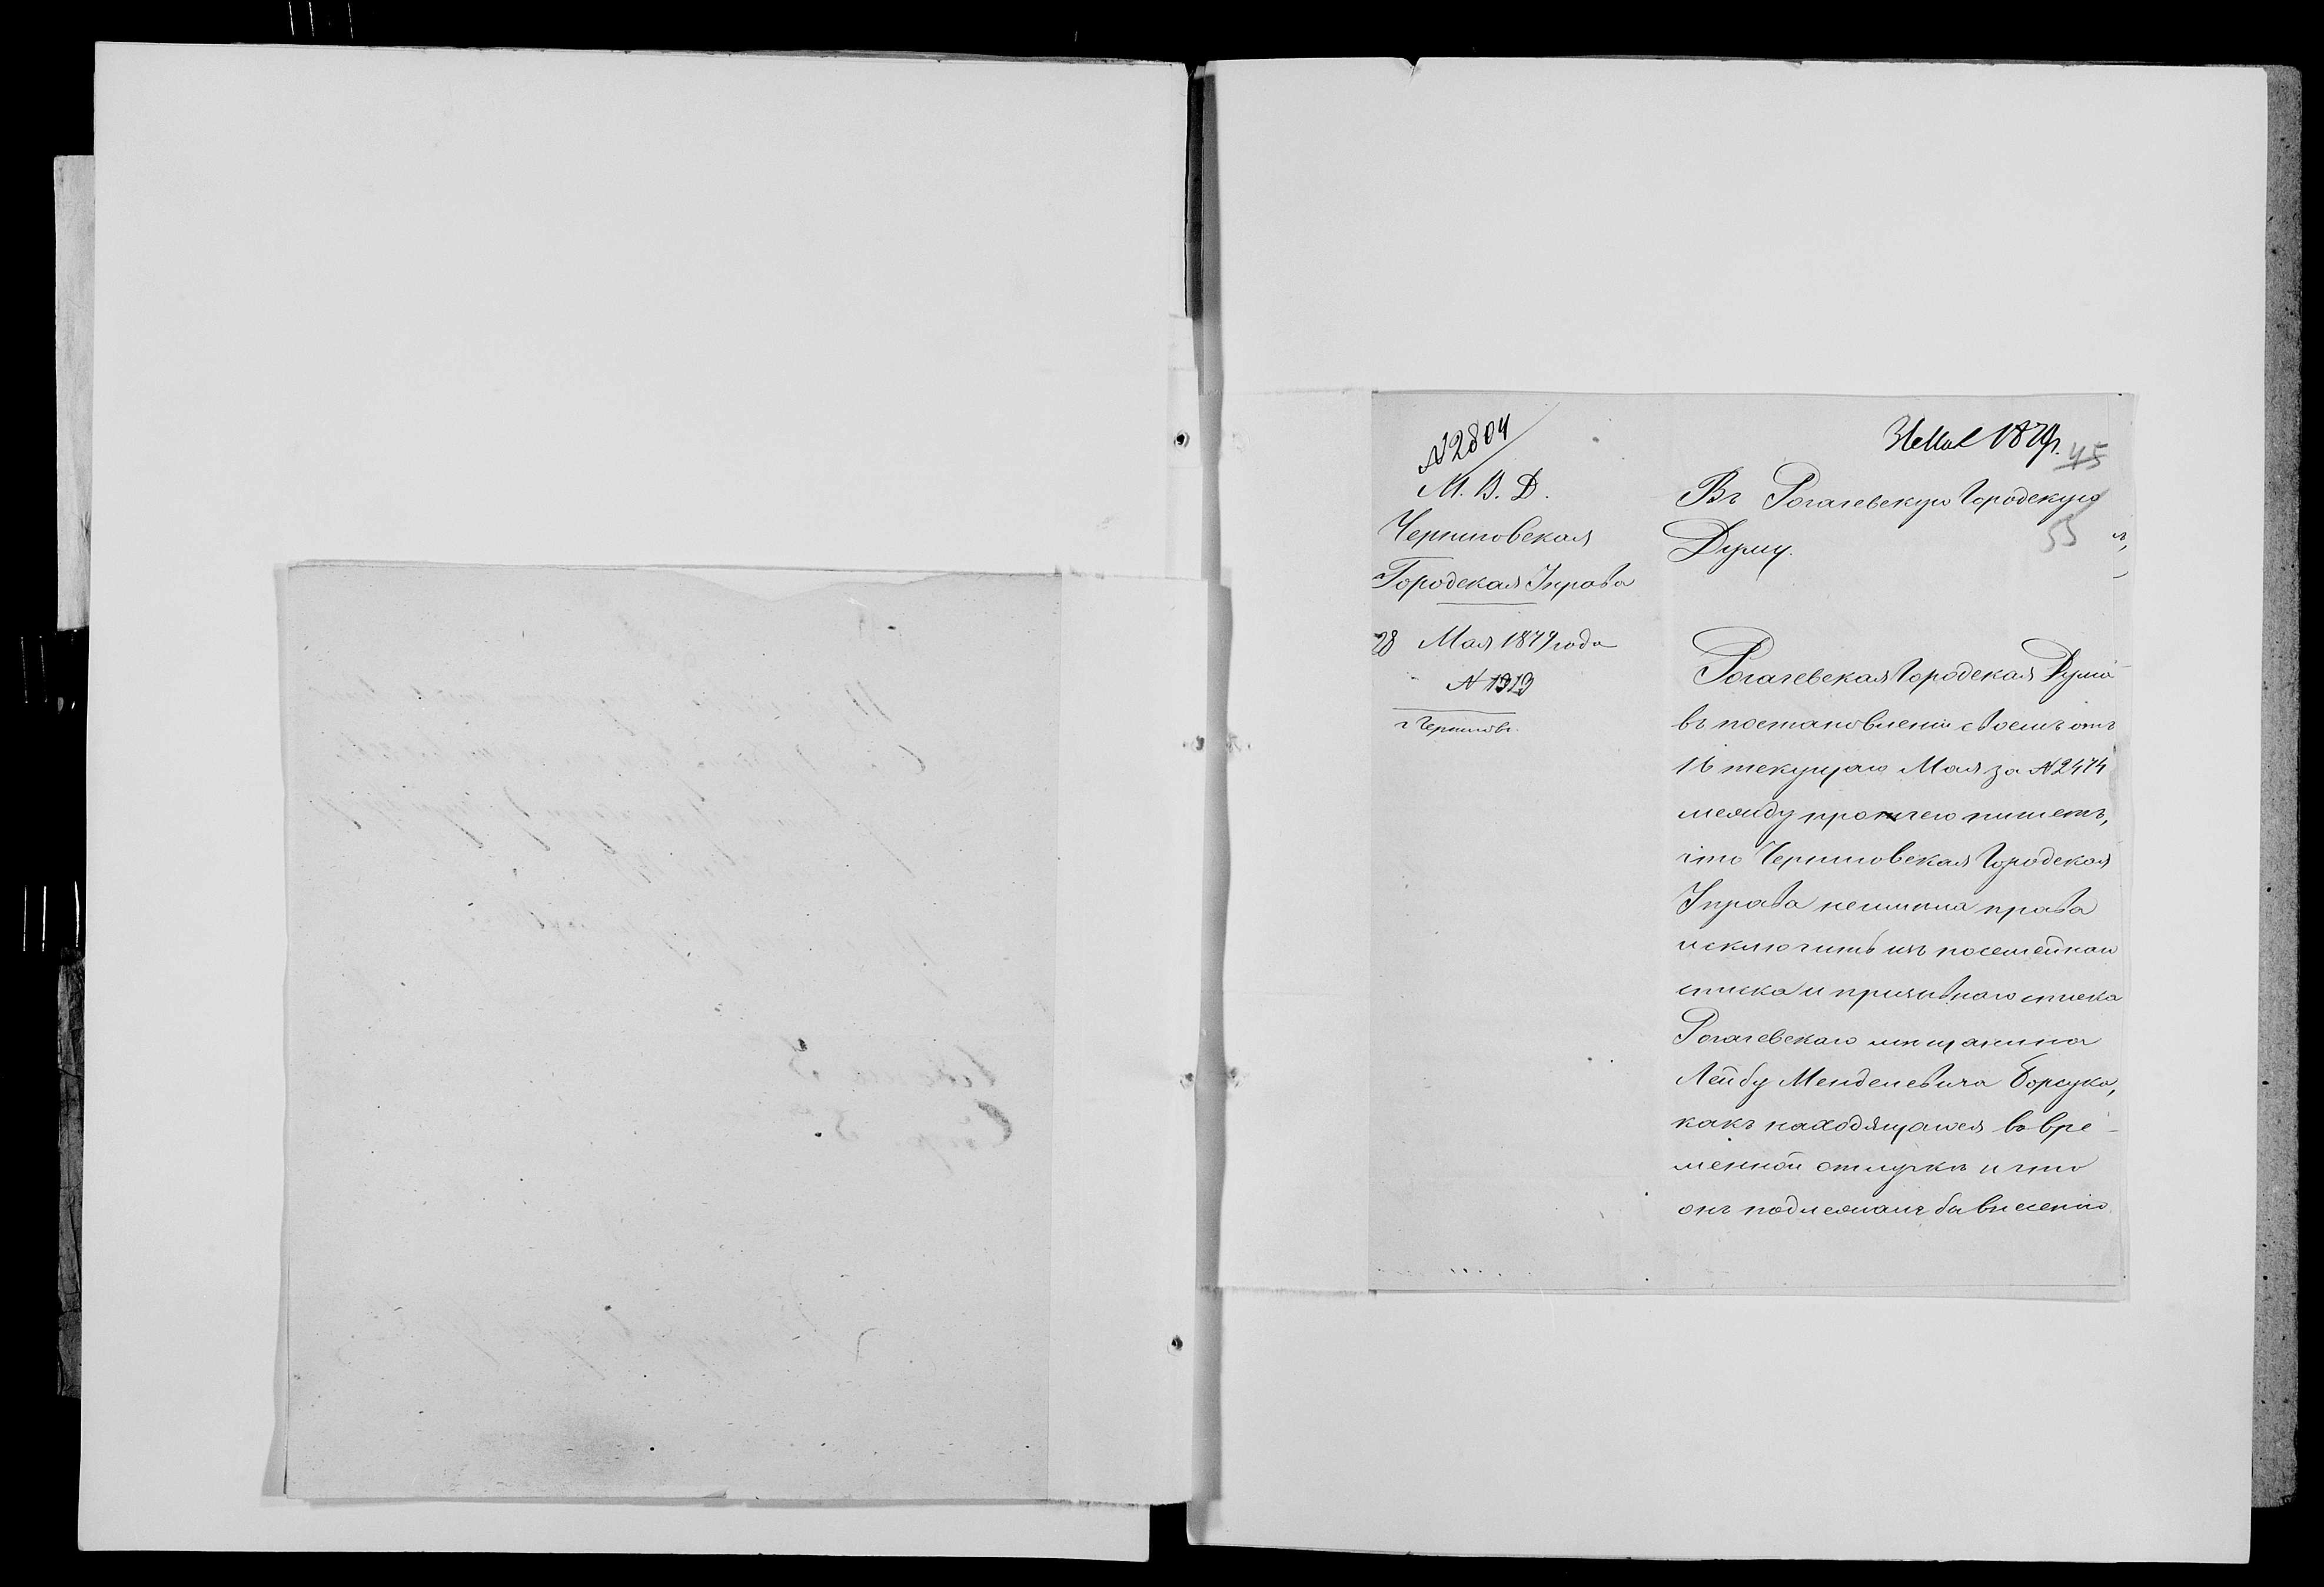 № 2804
М. В. Д.
Черниговская
Городская Управа
28 Мая 1879 года
№ 1313
г. Черниговъ.
31 Мая 1879 г.
45
55
Въ Рогачевскую Городскую
Думу.
Рогачевская Городская Дума
въ постановленіи своемъ отъ
16 текущаго Мая за № 2474
между прочего пишетъ,
что Черниговская Городская
Управа неимѣла права
исключить изъ посемейнаго
списка и призывнаго списка
Рогачевскаго мѣщанина
Лейбу Менделевича Борсука,
какъ находящагося во вре-
менной отлучкѣ и что
онъ подлежалъ бы внесенію